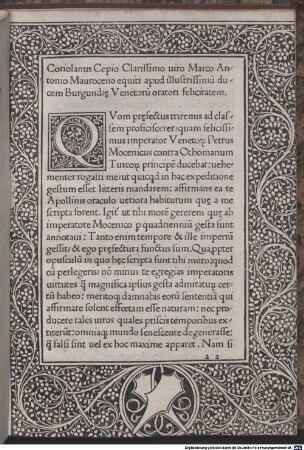 Coriolanus Cepio Clarissimo uiro Marco An
tonio Mauroceno equiti apud illustrissimũ du
cem Burgundię Venetorũ oratori felicitatem.
QVom pręfectus triremis ad clas
sem proficisceret quam felicissi
mus imperator Venetoꝝ Petrus
Mocenicus contra Othomanum
Turcoꝝ principẽ ducebat: uehe
menter rogasti me ut quicqd in hac expeditione
gestum esset litteris mandarem: affirmans ea te
Apollinis oraculo uetiora habiturum que a me
scripta forent. Igit̃ ut tibi morẽ gererem quę ab
imperatore Mocenico p quadrienniũ gesta sunt
annotaui: Tanto enim tempore & ille imperiũ
gessit: & ego pręfectura functus sum. Quapp̱ter
opusculũ in quo hęc scripta sunt tibi mitto: quod
cũ perlegeris: nõ minus te egregias imperatoris
uirtutes q̃ magnifica ipsius gesta admiraturũ cer
tũ habeo: meritoq; damnabis eorũ sententiã qui
affirmare solent effœtam esse naturam: nec pro
ducere tales uiros quales priscis temporibus ex
titerũt: omniaq; mundo senescente degenerasse:
q̃ falsi sint uel ex hoc maxime apparet. Nam si
a 2